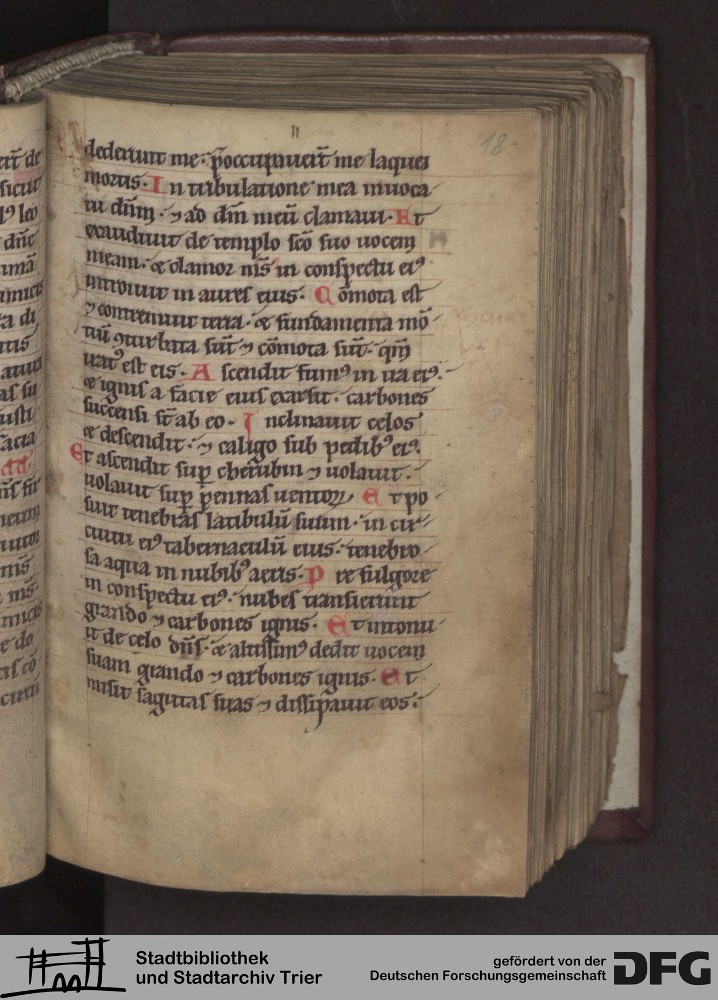 ıı
18
dederunt me· p̄occupauer̄t me laquei
mortis· In tribulatione mea inuoca
ui dñm· ⁊ ad dm̄ meū clamaui· Et
exaudiuit de templo sc̄o suo uocem
meam· & clamor m̄s in conspectu ei⁹
introiuit in aures eius· Cōmota est
⁊ contremuit terra· & fundamenta mō
tiū ꝯturbata sūt ⁊ cōmota sūt· qm̄
irat⁹ est eis· Ascendit fum⁹ in ira ei⁹·
& ignis a facie eius exarsit· carbones
succensi st̄ ab eo· Inclinauit celos
& descendit· ⁊ caligo sub pedib⁹ ei⁹·
Et ascendit sup̄ cherubin ⁊ uolauit·
uolauit sup̄ pennas uentoꝝ Et po
suit tenebras latibulū suum· in cir
cuitu ei⁹ tabernaculū eius· tenebro
sa aqua in nubib⁹ aeris· Pre fulgore
in conspectu ei⁹· nubes transierunt
grando ⁊ carbones ignis· Et intonu
it de celo dn̄s· & altissim⁹ dedit uocem
suam grando ⁊ carbones ignis· Et
misit sagittas suas ⁊ dissipauit eos·
Stadtbibliothek
und Stadtarchiv Trier
gefördert von der
Deutschen Forschungsgemeinschaft
DFG